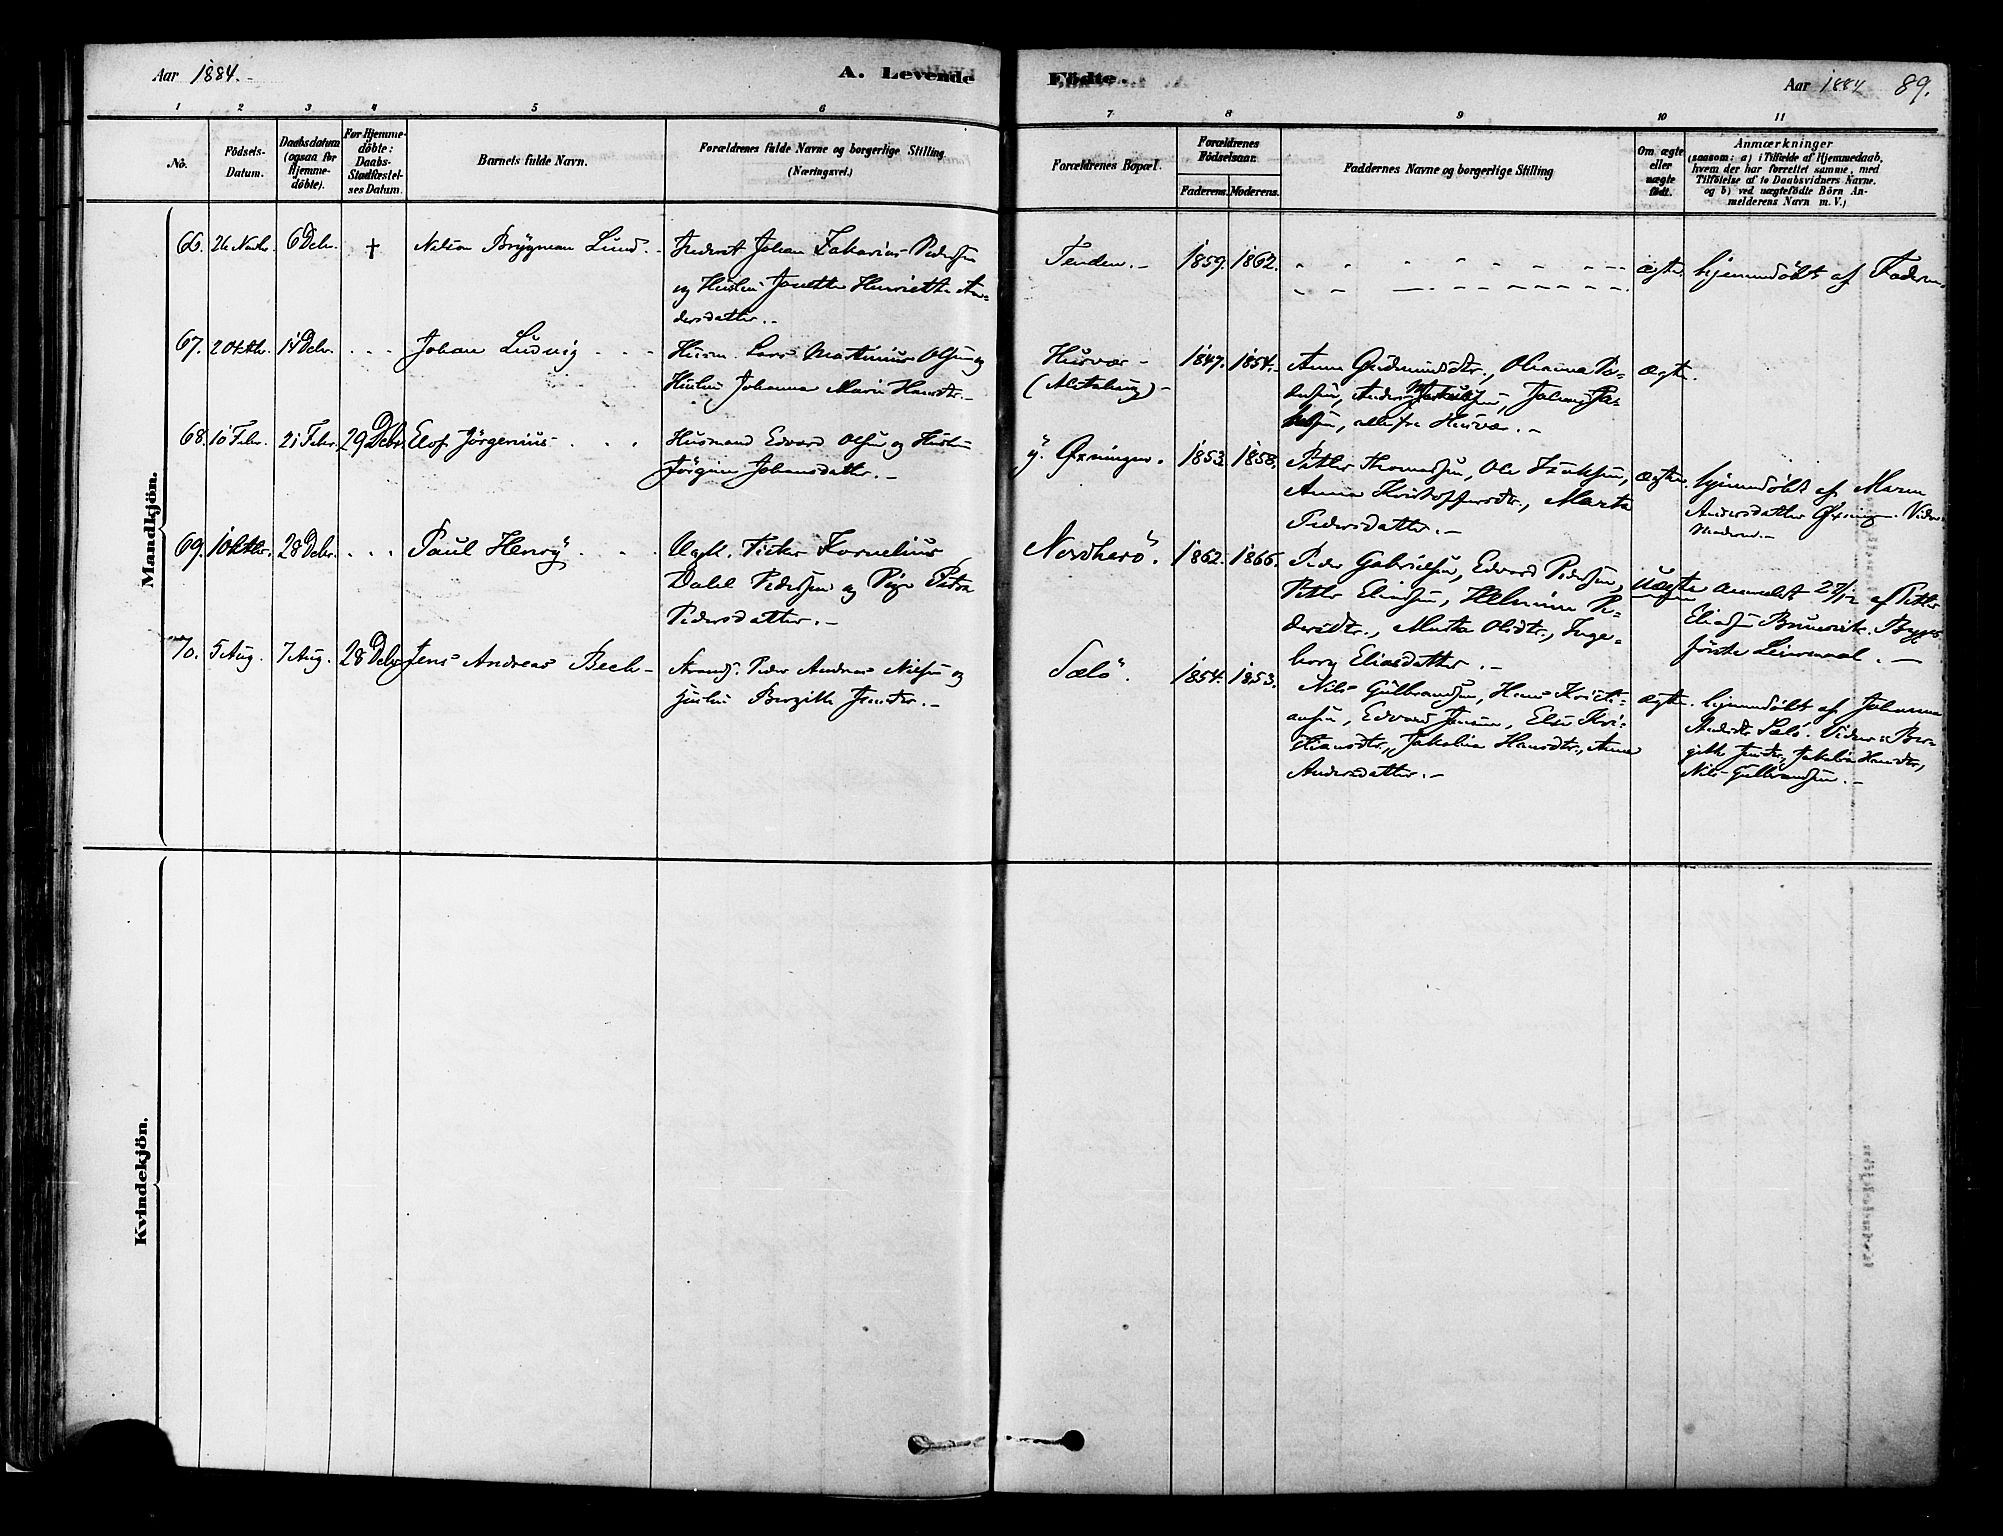 Aar 1884.
A. Levende Födte.
Aar 1884 89.
1 2 3 4 5 6 7 8 9 10 11
No.
Födsels-
Datum.
Daabsdatum
(ogsaa for
Hjemme-
döbte).
For Hjemme-
döbte:
Daabs-
Stadfæstel-
ses Datum.
Barnets fulde Navn.
Forældrenes fulde Navne og borgerlige Stilling
(Næringsvei.)
Forældrenes Bopæl.
Forældrenes
Födselsaar.
Faderens. Moderens.
Faddernes Navne og borgerlige Stilling
Om ægte
eller
uægte
födt.
Anmærkninger
(saasom: a) i Tilfælde af Hjemmedaab,
hvem der har forrettet samme, med
Tilföielse af to Daabsvidners Navne.
og b) ved uægtefödte Börn An-
melderens Navn m. V.)
Mandkjön.
66. 26 Novbr. 6 Debr. † Nelson Brygman Lund
Johan Zakarias Pedersen
og Hustru Janetta Henriette An-
dersdatter.
Tenden. 1859. 1862. ægte. hjemmedöbt af Faderen.
67. 2 Oktbr. 14 Debr. Johan Ludvig
Husm. Lars Martinus Olsen og
Hustru Johanna Marie Hansdtr.
Husvær
1847. 1854.
Anna Gudmundsdtr., Olianna
Anders
alle fra Husvær.
ægte.
68. 10 Febr. 21 Febr. 29 Debr. Elof Jörgenius
Husmand Edvard Olsen og Hustru
Jörgine Johansdatter.
y. Öxningen. 1853. 1858.
Petter Thomassen, Ole Isaksen,
Anna Kristoffersdtr., Marta
Pedersdatter.
ægte. hjemmedöbt af Maren
Andersdatter Öxning.
69. 10 Oktbr. 28 Debr. Paul Henry
Ugk. Kornelius
Dahl Pedersen og Pige Petra
Pedersdatter.
Nordherö. 1862. 1866.
Peder Gabrielsen, Edvard Pedersen,
Petter Eliassen, Helmine Pe-
dersdtr., Marta Olsdtr., Inge-
borg Eliasdatter.
Uægte anmeldt 27/12 af Petter
Eliassen
förste Leiermaal.
70. 5 Aug. 7 Aug. 28 Debr. Jens Andreas Bech
Strands. Peder Andreas Nielsen og
Hustru Bergitte Jensdtr.
Sælö. 1854. 1853.
Nils Gulbrandsen, Hans Kristi-
ansen, Edvard Jensen, Else Kri-
stiansdtr., Jakobia Hansdtr., Anna
Andersdatter.
ægte. hjemmedöbt af Johanna
Andersdtr Sælö. Vidner: Ber-
gitte Jensdtr, Jakobia Hansdtr,
Nils Gulbrandsen.
Kvindekjön.